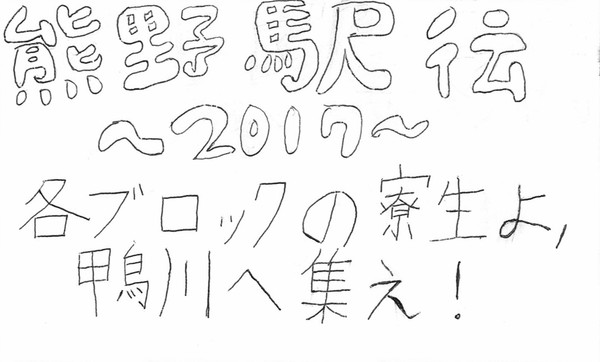 熊野駅伝
～2017～
各ブロックの寮生よ,
鴨川へ集え!